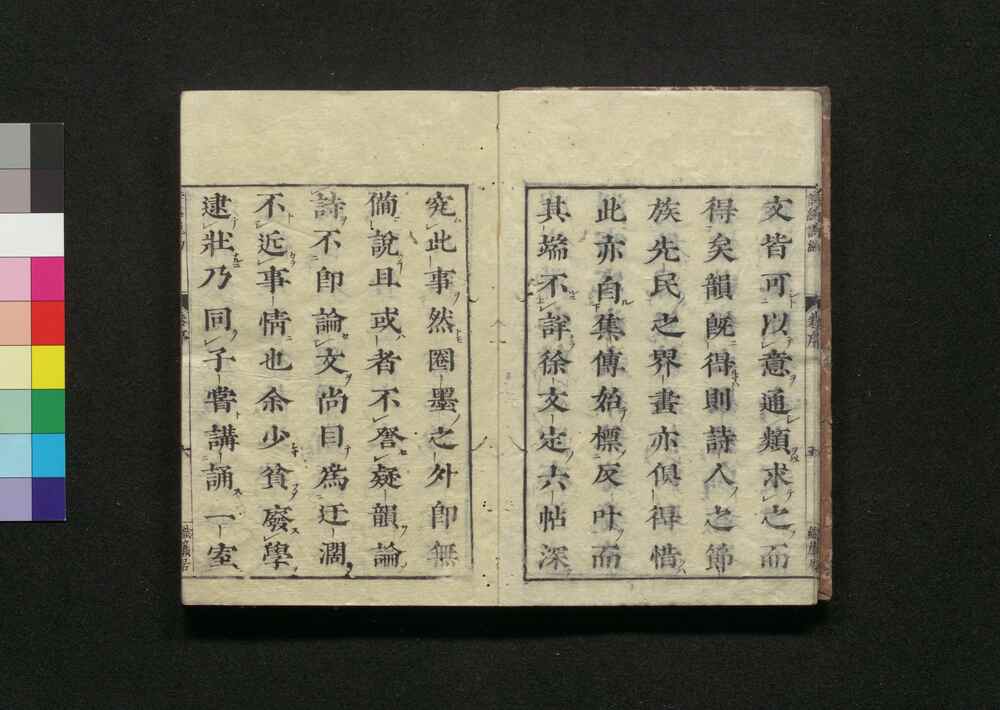 文皆可以意通類求之而
得矣韻既得則詩人之節
族先民之界畫亦俱得惜
此亦自集傳始標反叶而
其端不詳徐文定六帖深
究此事然圈墨之外卽無
備說且或者不啓疑韻論
詩不卽論文尚目爲迂濶
不近事情也余少貧廢學
逮壯乃同子嘗講誦一室